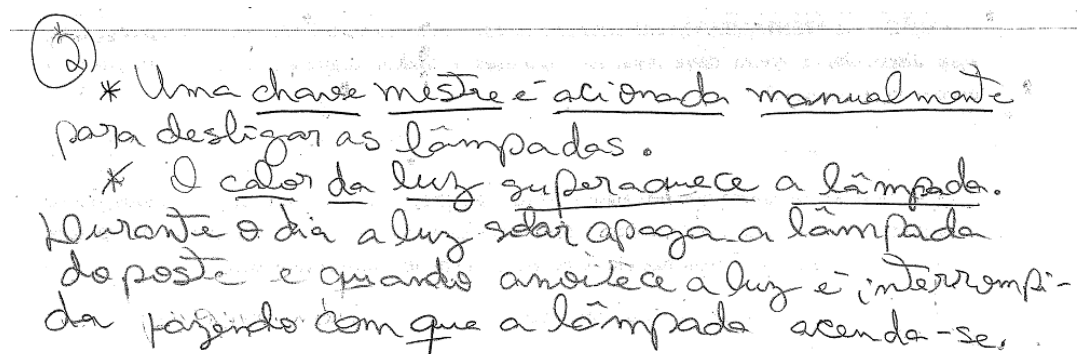 2
* Uma chave mestre é acionada manualmente
para desligar as lâmpadas.
* O calor da luz superaquece a lâmpada.
Durante o dia a luz solar apaga a lâmpada
do poste e quando anoitece a luz é interrompi-
da fazendo com que a lâmpada acenda-se.